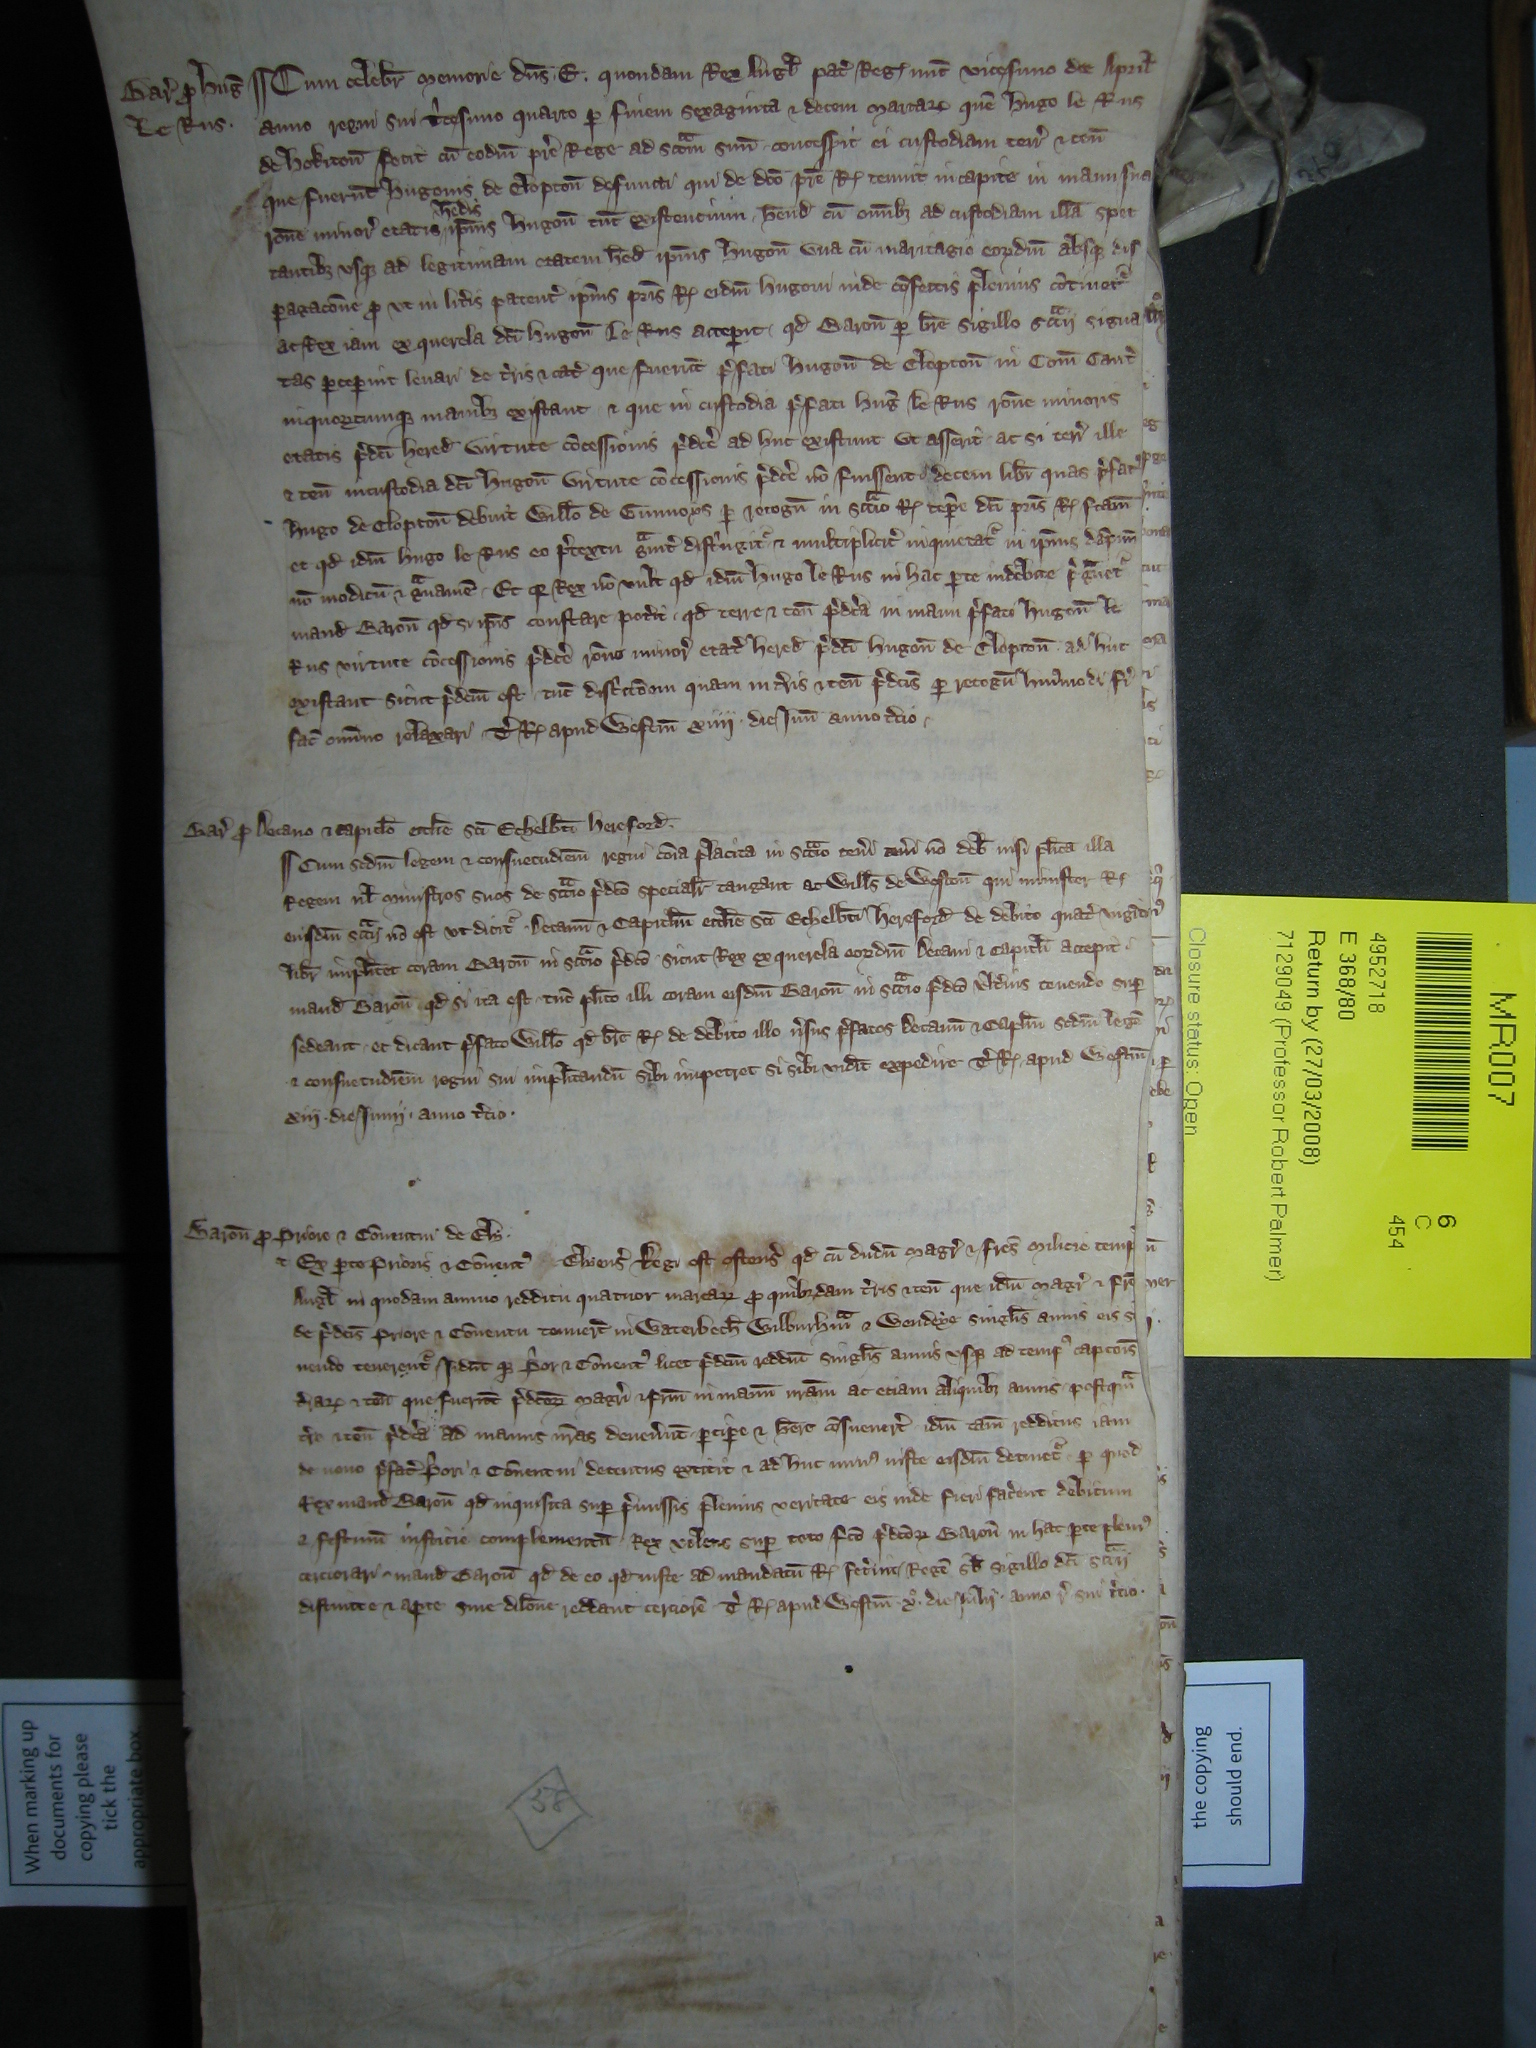 Bar̄ p̱ Huḡ ¶ Cum celebr̄ memorie dn̄s .E. quondam Rex Angl̄ pat̄ Reḡ nunc vicesimo die April̄
Le Rus . anno regni sui t̄cesimo quarto p̱ finem sexaginta ⁊ decem marcaꝝ quē Hugo le Rus
de Hokiton̄ fecit cū eodm̄ pr̄e Rege ad sccm̄ suū concessit ei custodiam terr̄ ⁊ ten̄
que fuerūt Hugonis de Clopton̄ defuncti qui de dc̄o pr̄e R̄ tenuit in capite in manu sua
rōne minor̄ etatis h̄edis ip̄ius Hugon̄ tūc existencium h̄end̄ cū om̄ibȝ ad custodiam illā spec
tantibȝ usqȝ ad legitimam etatem h̄ed̄ ip̄ius Hugon̄ una cū maritagio eoꝝdm̄ absqȝ dis
paragacōne ꝓ ut in litt̄is patent̄ ip̄ius pr̄is R̄ eidm̄ Hugoni inde cōfectis plenius cōtinet̄
ac Rex iam ex querela dc̄i Hugon̄ le Rus accepit qd̄ Baron̄ p̱ br̄e sigillo sccīj signa
tas p̄ceperint levari de t̄ris ⁊ cat̄ que fuerūt p̄fati Hugon̄ de Clopton̄ in Com̄ Cant̄
in quorumcumqȝ manibȝ existant ⁊ que in custodia p̄fati Huḡ le Rus rōne minoris
etatis p̄dc̄i hered̄ virtute cōcessionis p̄dc̄e ad huc existunt ut asserit ac si terr̄ ille
⁊ ten̄ in custodia dc̄i Hugon̄ virtute cōcessionis p̄dc̄e nō fuissent decem libr̄ quas p̄fat̄
Hugo de Clopton̄ debuit Will̄o de p̱ recogn̄ in scc̄io R̄ temp̄e dc̄i pr̄is R̄ fc̄am
et qd̄ idm̄ Hugo le Rus eo p̄textu gͣvit̄ distringit̄ ⁊ multiplicit̄ inquietat̄ in ip̄ius dāpnū
nō modicū ⁊ gͣvamē . Et qȝ Rex nō vult qd̄ idm̄ Hugo le Rus in hac p̱te indebite p̄gͣvet̄
mand̄ Baron̄ qd̄ si ip̄is constare pot̄it qd̄ terre ⁊ ten̄ p̄dc̄a in manu p̄fati Hugon̄ le
Rus virtute cōcessionis p̄dc̄e rōne minor̄ etat̄ hered̄ p̄dc̄i Hugon̄ de Clopton̄ ad huc
existant sicut p̄dcm̄ est tūc districcōem quam in t̄ris ⁊ ten̄ p̄dc̄is p̱ recogn̄ huiusmodi fi
fac̄ om̄ino relaxari . T̄ R̄ apud Westm̄ xiiij . die Jun̄ anno t̄cio .
Bar̄ ꝓ Decano ⁊ capitl̄o eccl̄ie sc̄i Ethelb̄ti Hereford̄ .
¶ Cum scdm̄ legem ⁊ consuetudiem̄ regni cōia placita in scc̄io teneri nō deb̄ nisi pl̄ita illa
Regem ul̄ ministros suos de scc̄io p̄dc̄o specialr̄ tangant ac Will̄s de Weston̄ qui minister R̄
eiusdm̄ sccīj nō est ut dicit̄ . Decanū ⁊ Capitlm̄ eccl̄ie sc̄i Ethelb̄ti Hereford̄ de debito quat̄ viginti
libr̄ implitet coram Baron̄ in scc̄io p̄dc̄o sicut Rex ex querela eoꝝdm̄ Decani ⁊ capitl̄i accepit
mand̄ Baron̄ qd̄ si ita est tūc pl̄ito illi coram eisdm̄ Baron̄ in scc̄io p̄dc̄o ult̄ius tenendo sup̱
sedeant . et dicant p̄fato Will̄o qd̄ br̄e R̄ de debito illo v̄sus p̄fatos Decanū ⁊ Caplm̄ scdm̄ legē
⁊ consuetudiem̄ regni sui implitandū sibi impetret si sibi vid̄it expedire . T̄ R̄ apud Westm̄
xiij . die Junij . anno t̄cio .
Baron̄ ꝓ Priore ⁊ Cōventui de Ely .
Ex p̱te Prioris ⁊ Cōvent̄ Elyens̄ Regi est ostens̄ qd̄ cū dudū magr̄ ⁊ fr̄es milicie templ̄
Angl̄ in quodam annuo redditu quatuor marcaꝝ ꝓ quibȝdam t̄ris ⁊ ten̄ que idm̄ magr̄ ⁊ fr̄es
de p̄dc̄is Priore ⁊ Cōventu tenuer̄t in Waterbech̄ Wilburh̄m ⁊ Wendeye singlis annis eis
vendo tenerent̄ . Idūt qȝ P̄or ⁊ Cōvent̄ licet p̄dcm̄ redditū singlis annis usqȝ ad temp̄ captōis
t̄raꝝ ⁊ ten̄ que fuerūt p̄dc̄oꝝ magr̄i ⁊ fr̄m in manū nr̄am ac etiam aliquibȝ annis postqͣ
t̄re ⁊ ten̄ p̄dc̄a ad manus nr̄as deven̄unt p̱cip̱e ⁊ h̄ere cōsuever̄t idm̄ tam̄ redditus iam
de novo p̄fat̄ P̄ori ⁊ Cōventui detentus extitit ⁊ ad huc min̄ iuste eisdm̄ detinet̄ p̱ quod
Rex mand̄ Baron̄ qd̄ inquisita sup̱ p̄missis plenius veritate eis inde fieri fac̄ent debitum
⁊ festinū iusticie complementū . Rex volens sup̱ toto fc̄o p̄dc̄oꝝ Baron̄ in hac p̱te plen̄
cerciorari mand̄ Baron̄ qd̄ de eo qd̄ iuste ad mandatū R̄ fec̄int Regē sb̄ sigillo dc̄i sccīj
distincte ⁊ ap̱te sine dilōne reddant cerciorē . T̄ R̄ apud Westm̄ x° die Julij anno r̄ sui t̄cio .
58
MR007
6
C
454
4952718
E 368/80
Return by (27/03/2008)
7129049 (Professor Robert Palmer)
Closure status: Open
When marking up
documents for
copying please
tick the
appropriate box
the copying
should end.